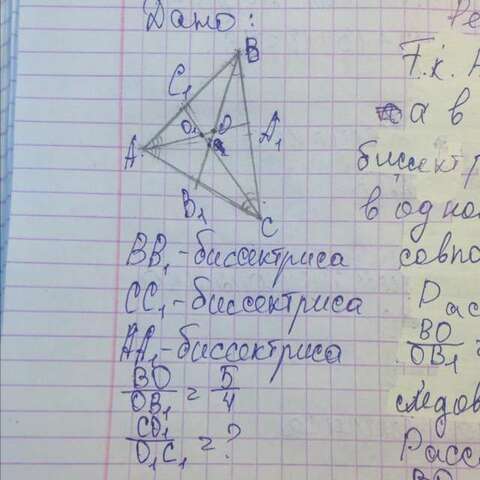 Дано:
Ре
B
C₁
O₁ O
A₁
A
B₁
C
BB₁ - биссектриса
CC₁ - биссектриса
AA₁ - биссектриса
BO/OB₁ = 5/4
CO₁/O₁C₁ = ?
Т.к. А
а в
биссектр
в одно
совпа
Рас
BO/OB₁ =
следов
Расс